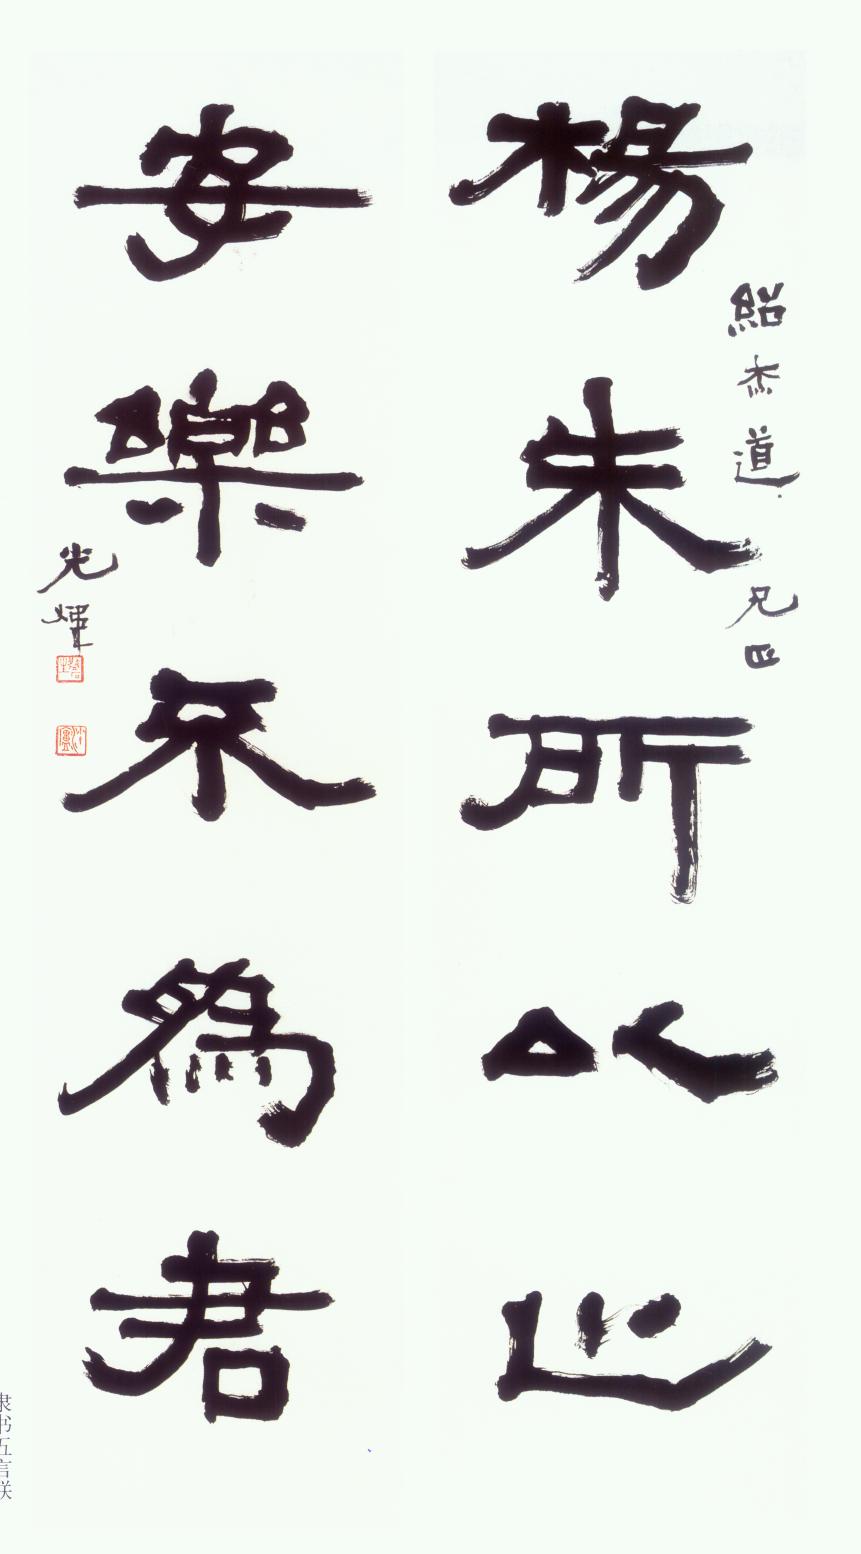 楊朱所以之
紹杰道兄正
安樂不爲君
光煇
隶书五言联